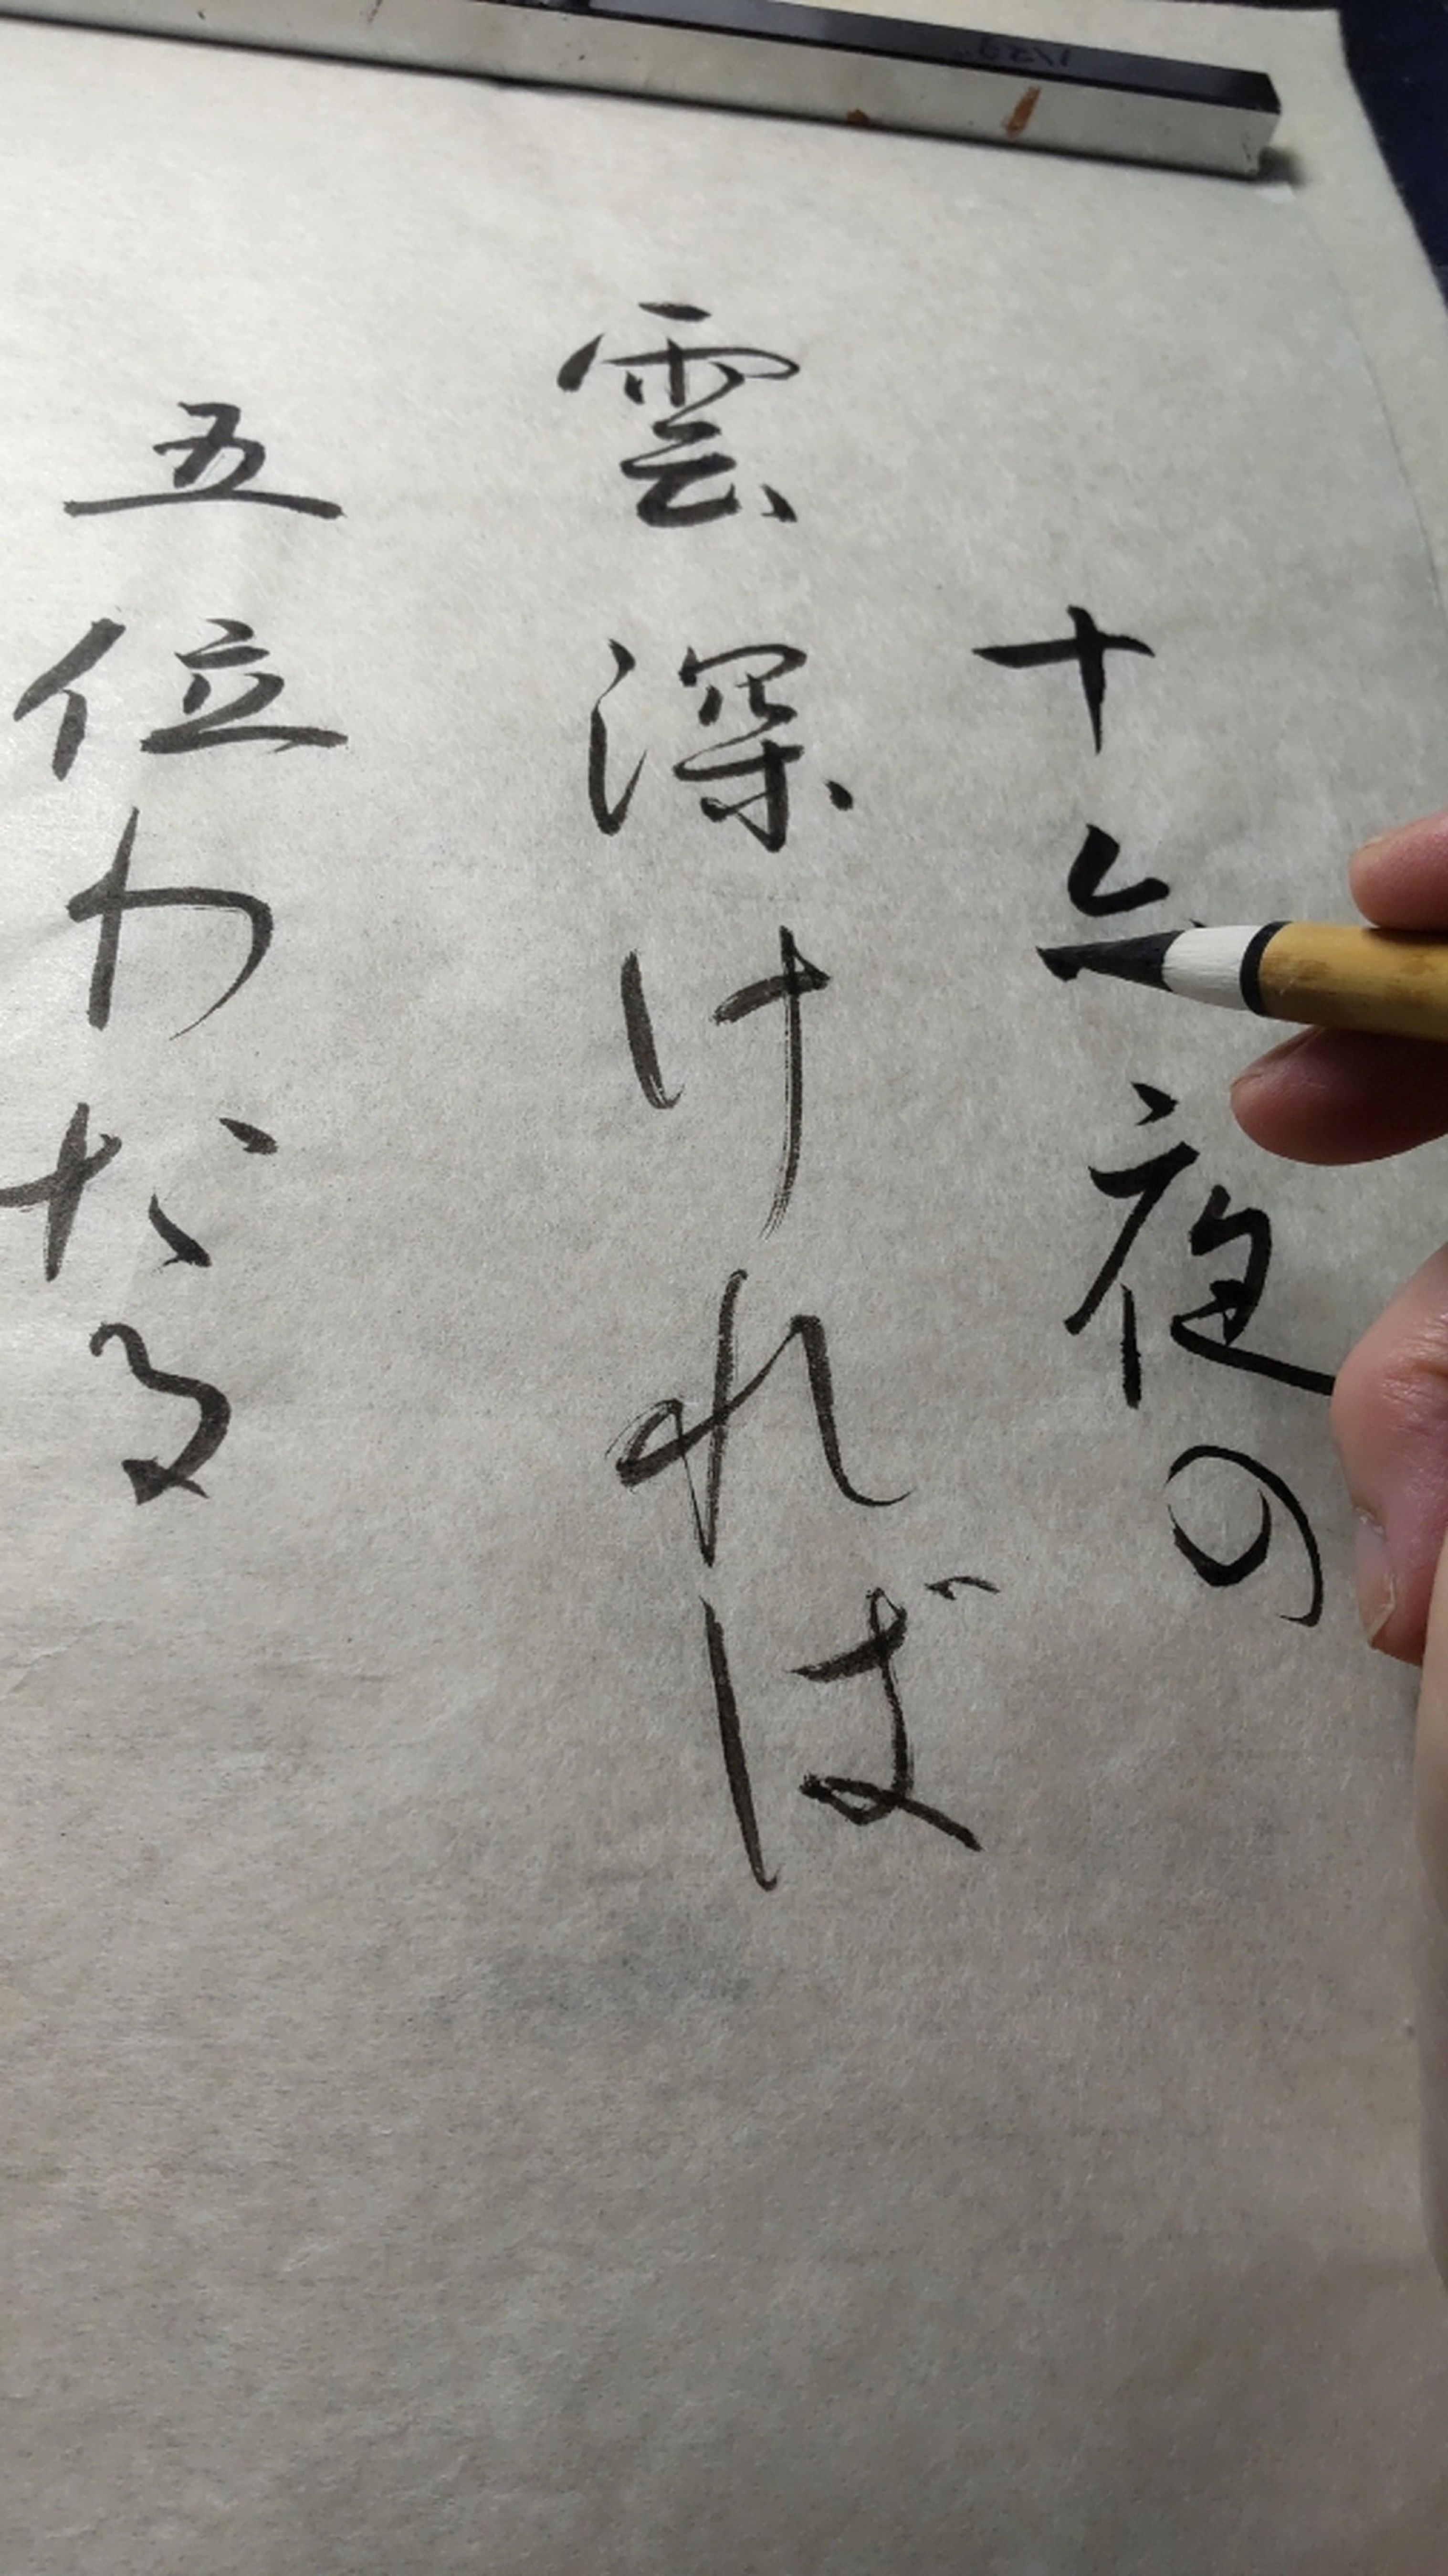 十六夜の
雲深ければ
五位わたる